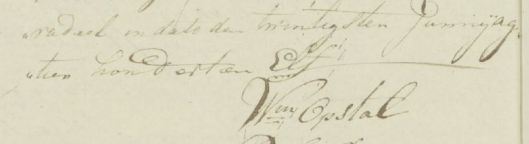 radeel in dato den twintigsten Junij ag
tien hondert en Elf
Wm Opstal